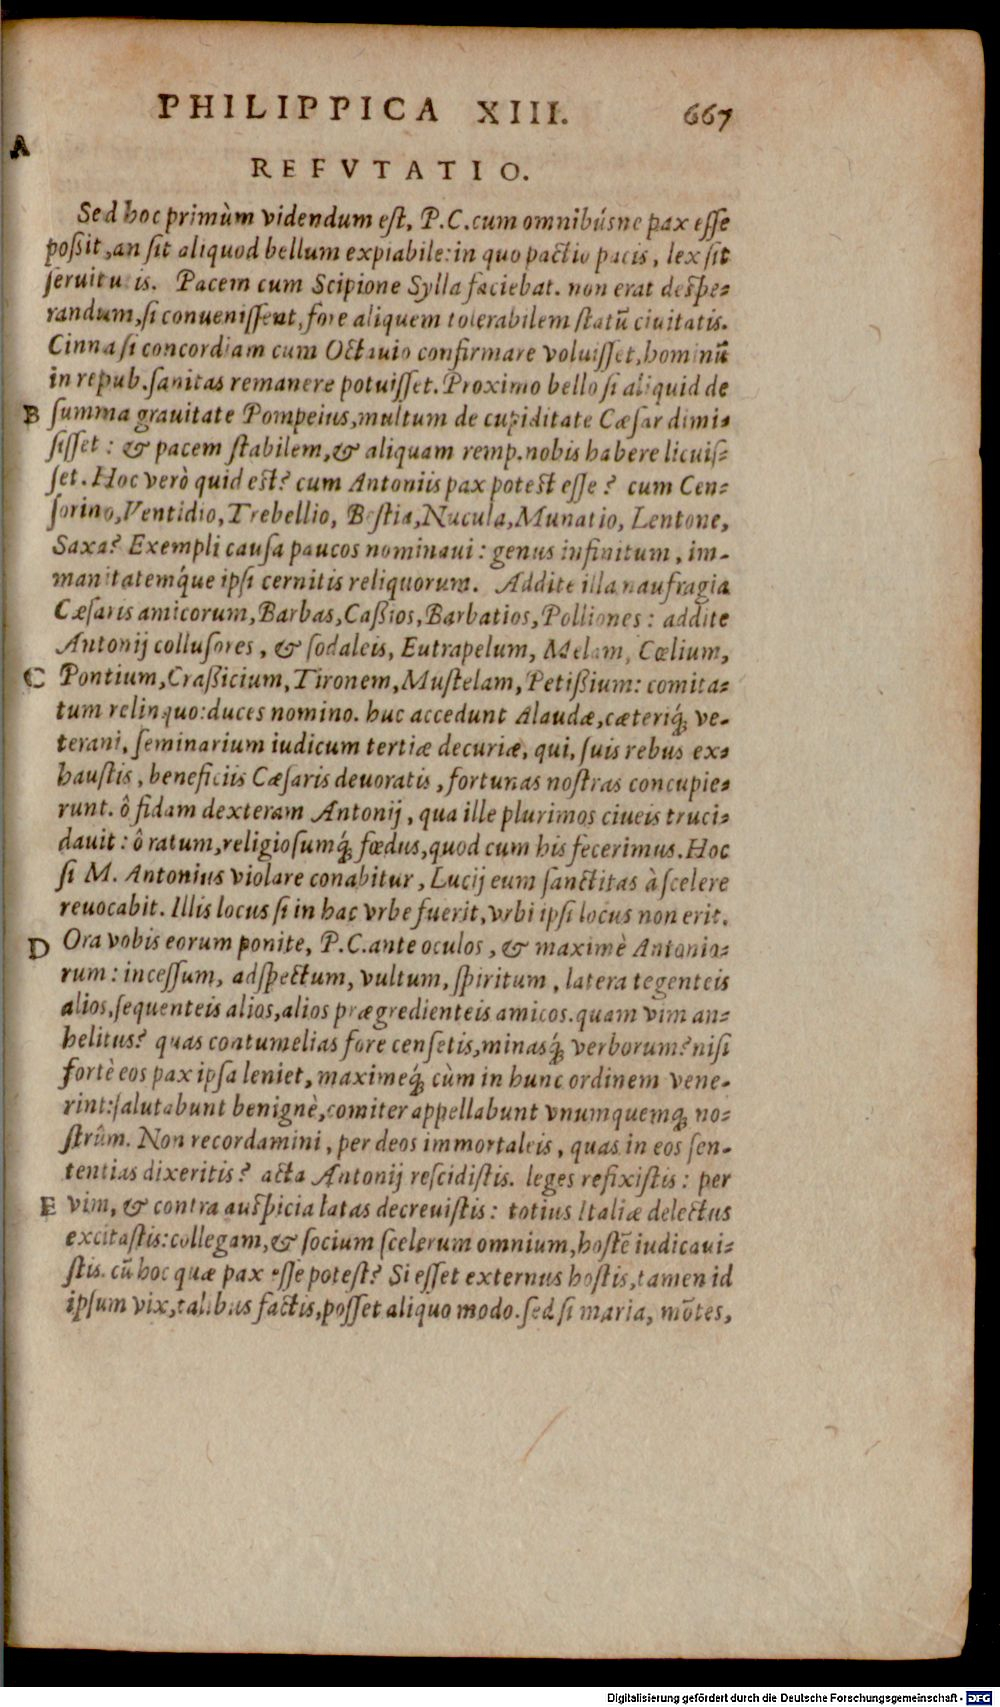 PHILIPPICA XIII. 667
A
REFVTATIO.
Sed hoc primùm videndum est, P.C. cum omnibúsne pax esse
poßit, an sit aliquod bellum expiabile: in quo pactio pacis, lex sit
seruitutis. Pacem cum Scipione Sylla faciebat. non erat despe-
randum, si conuenissent, fore aliquem tolerabilem statū ciuitatis.
Cinna si concordiam cum Octauio confirmare voluisset, hominū
in repub. sanitas remanere potuisset. Proximo bello si aliquid de
B summa grauitate Pompeius, multum de cupiditate Cæsar dimi-
sisset: & pacem stabilem, & aliquam remp. nobis habere licuis-
set. Hoc verò quid est? cum Antoniis pax potest esse? cum Cen-
sorino, Ventidio, Trebellio, Bestia, Nucula, Munatio, Lentone,
Saxa? Exempli causa paucos nominaui: genus infinitum, im-
manitatemq́ue ipsi cernitis reliquorum. Addite illa naufragia
Cæsaris amicorum, Barbas, Caßios, Barbatios, Polliones: addite
Antonij collusores, & sodaleis, Eutrapelum, Melam, Cœlium,
C Pontium, Craßicium, Tironem, Mustelam, Petißium: comita-
tum relinquo: duces nomino. huc accedunt Alaudæ, cæteriq́; ve-
terani, seminarium iudicum tertiæ decuriæ, qui, suis rebus ex-
haustis, beneficiis Cæsaris deuoratis, fortunas nostras concupie-
runt. ô fidam dexteram Antonij, qua ille plurimos ciueis truci-
dauit: ô ratum, religiosumq́; fœdus, quod cum his fecerimus. Hoc
si M. Antonius violare conabitur, Lucij eum sanctitas à scelere
reuocabit. Illis locus si in hac vrbe fuerit, vrbi ipsi locus non erit.
D Ora vobis eorum ponite, P.C. ante oculos, & maximè Antonio-
rum: incessum, adspectum, vultum, spiritum, latera tegenteis
alios, sequenteis alios, alios prægredienteis amicos. quam vim an-
helitus? quas contumelias fore censetis, minasq́; verborum? nisi
fortè eos pax ipsa leniet, maximeq́; cùm in hunc ordinem vene-
rint: salutabunt benignè, comiter appellabunt vnumquemq; no-
strûm. Non recordamini, per deos immortaleis, quas in eos sen-
tentias dixeritis? acta Antonij rescidistis. leges refixistis: per
E vim, & contra auspicia latas decreuistis: totius Italiæ delectus
excitastis: collegam, & socium scelerum omnium, hostē iudicaui-
stis. cū hoc quæ pax esse potest? Si esset externus hostis, tamen id
ipsum vix, talibus factis, posset aliquo modo. sed si maria, mōtes,
Digitalisierung gefördert durch die Deutsche Forschungsgemeinschaft - DFG